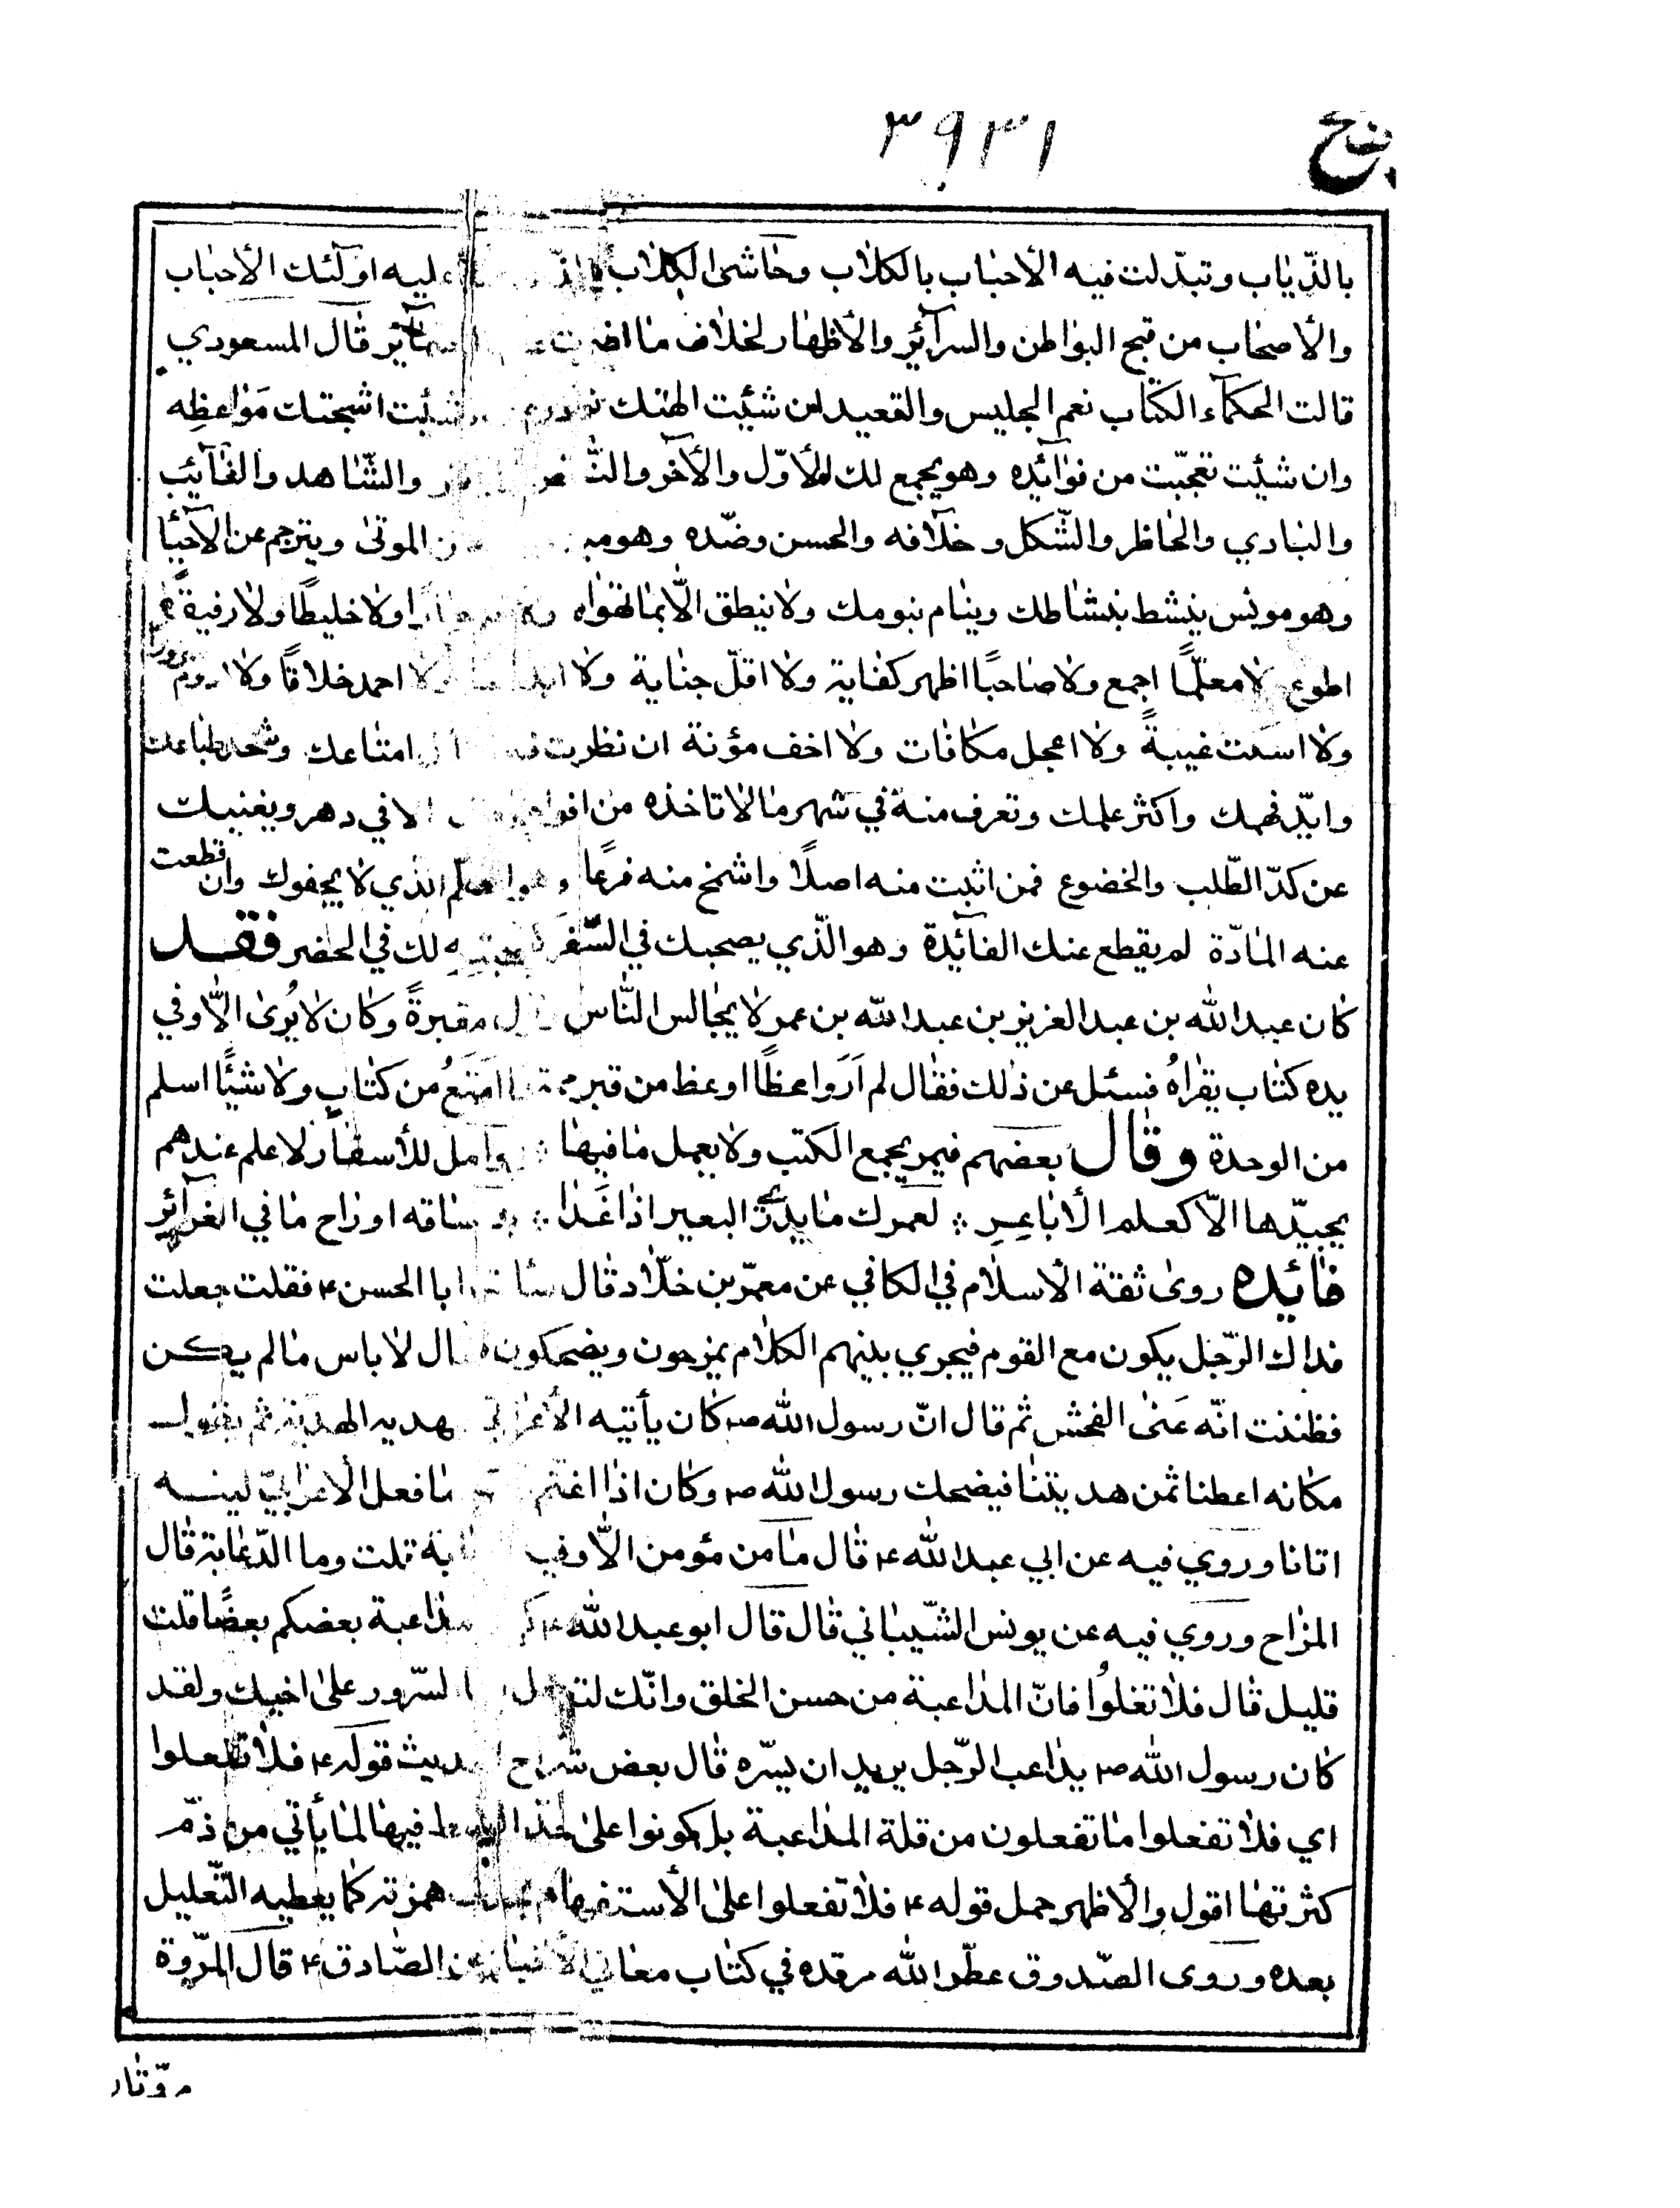 ٣٩٣١
بالذّياب وتبدّلت فيه الأحباب بالكلاب وحاشى الكلاب عليه اولئك الأحباب
والأصحاب من قبح البواطن والسرآئر والأظهار لخلاف ما قال المسعودي
قالت الحكمآء الكتاب نعم الجليس والقعيد ان شئت الهتك شئت اشجتك مواعظه
وان شئت تعجّبت من فوآئده وهو يجمع لك الأوّل والآخر والشاهد والغآئب
والبادي والحاظر والشّكل وخلافه والحسن وضدّه وهو الموتى ويترجم عن الأحيآء
وهو مونس ينشط بنشاطك وينام بنومك ولا ينطق الّا بما تهواه ولا خليطًا ولا رفيقًا
اطوع ولا معلّمًا اجمع ولا صاحبًا اظهر كفاية ولا اقلّ جناية ولا ولا احمد خلاقًا ولا
ولا اسكت غيبةً ولا اعجل مكافات ولا اخف مؤنة ان نظرت امتاعك وشحد طباعك
وايّد فهمك واكثر علمك وتعرف منه في شهر ما لا تاخذه من الا في دهر ويغنيك
عن كدّ الطّلب والخضوع فمن اثبت منه اصلًا واشمخ منه فرعًا الذي لا يجفوك وان قطعت
عنه المادّة لم يقطع عنك الفآئدة وهو الّذي يصحبك في السّفر لك في الحضر فقد
كان عبد الله بن عبد العزيز بن عبد الله بن عمر لا يجالس النّاس مقبرةً وكان لا يُرى الّا وفي
يده كتاب يقراهُ فسئل عن ذلك فقال لم اَرَ واعظًا اوعظ من قبر امتعُ من كتاب ولا شيئًا اسلم
من الوحدة وقال بعضهم فيمن يجمع الكتب ولا يعمل ما فيها زوامل للأسفار لا علم عندهم
بجيّدها الّا كعلم الأباعِرِ لعمرك ما يدري البعير اذا غَدا اوراح ما في الغرآئر
فائده روى ثقة الأسلام في الكافي عن معمّر بن خلّاد قال ابا الحسن ع فقلت جعلت
فداك الرّجل يكون مع القوم فيجري بينهم الكلام يمزحون ويضحكون لا باس ما لم يكن
فظننت انّه عَنى الفحش ثم قال انّ رسول الله ص كان يأتيه الأعرابي الهديّة ثم يقول
مكانه اعطنا ثمن هديتنا فيضحك رسول الله ص وكان اذا اغتم ما فعل الأعرابيّ ليته
اتانا وروي فيه عن ابي عبد الله ع قال ما من مؤمن الّا وفيه قلت وما الدّعابة قال
المزاح وروي فيه عن يونس الشّيباني قال قال ابو عبد الله ع مداعبة بعضكم بعضًا قلت
قليل قال فلا تفعلوُا فانّ المداعبة من حسن الخلق وانّك السّرور على اخيك ولقد
كان رسول الله ص يداعب الرّجل يريد ان يسّره قال بعض شرّاح الحديث قوله ع فلا تفعلوا
اي فلا تفعلوا ما تفعلون من قلة المداعبة بل كونوا على فيها لما يأتي من ذمّ
كثرتها اقول والأظهر حمل قوله ع فلا تفعلوا على الأستفهام همزته كما يعطيه التّعليل
بعده وروى الصّدوق عطّر الله مرقده في كتاب معاني الأخبار عن الصّادق ع قال المرّوة